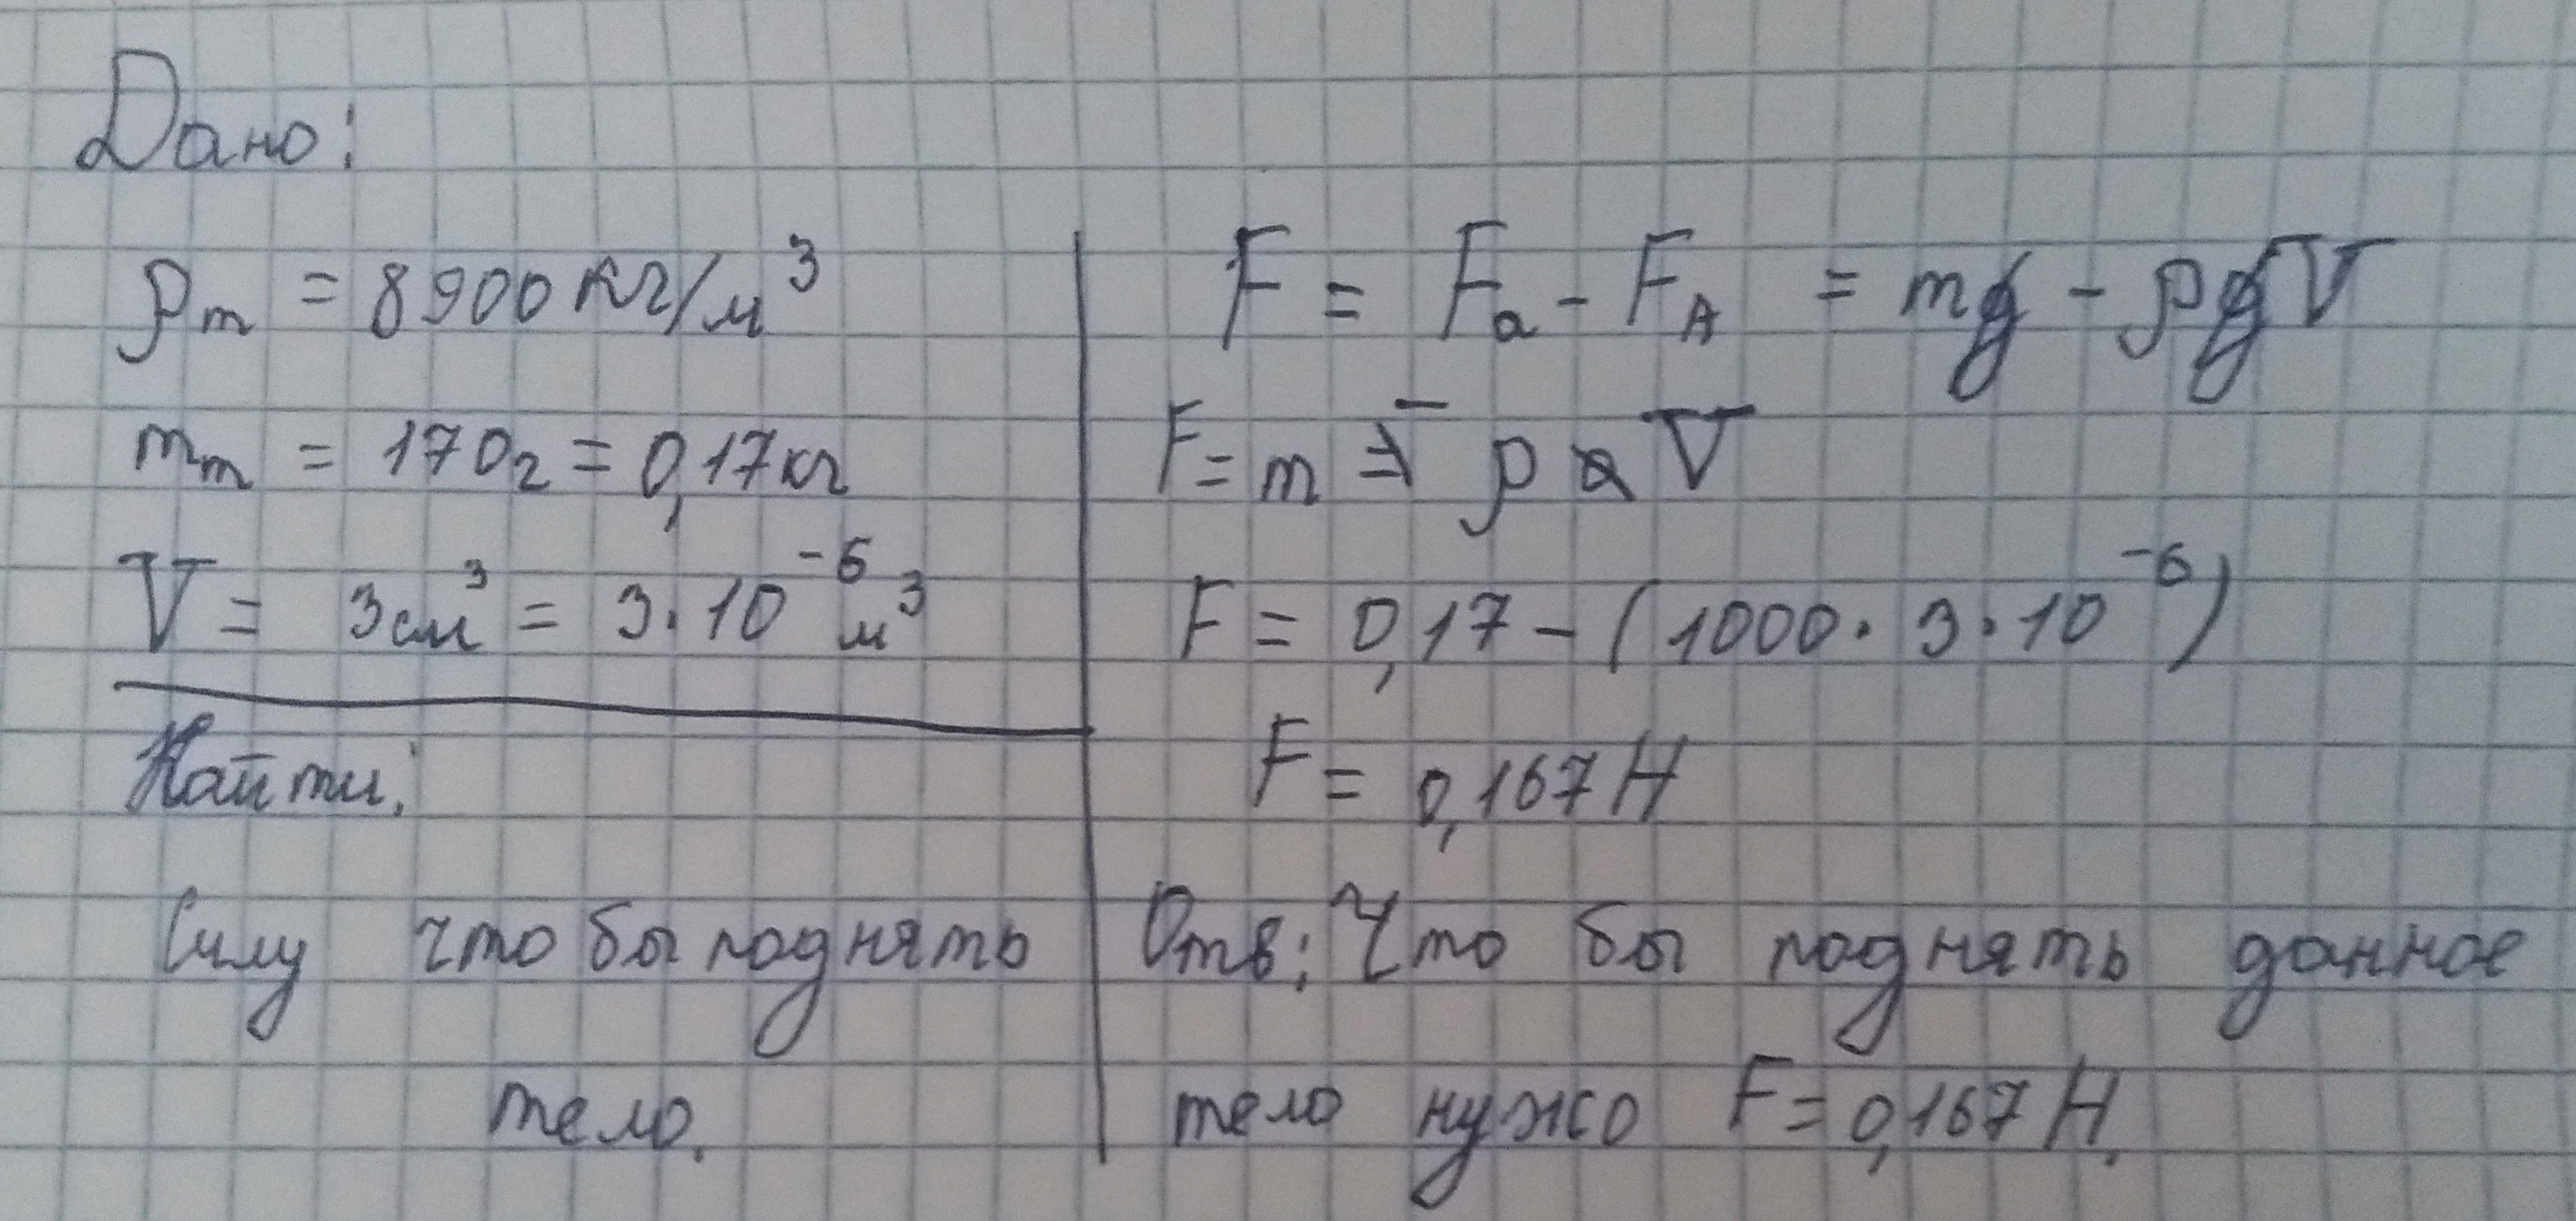 Дано:
ρт = 8900 кг/м³
mт = 170г = 0,17кг
V = 3см³ = 3·10⁻⁶ м³
Найти:
Силу что бы поднять
тело.
F = Fа - FA = mg - ρgV
F = m - ρ V
F = 0,17 - (1000 · 3 · 10⁻⁶)
F = 0,167 Н
Отв: Что бы поднять данное
тело нужо F = 0,167 Н.